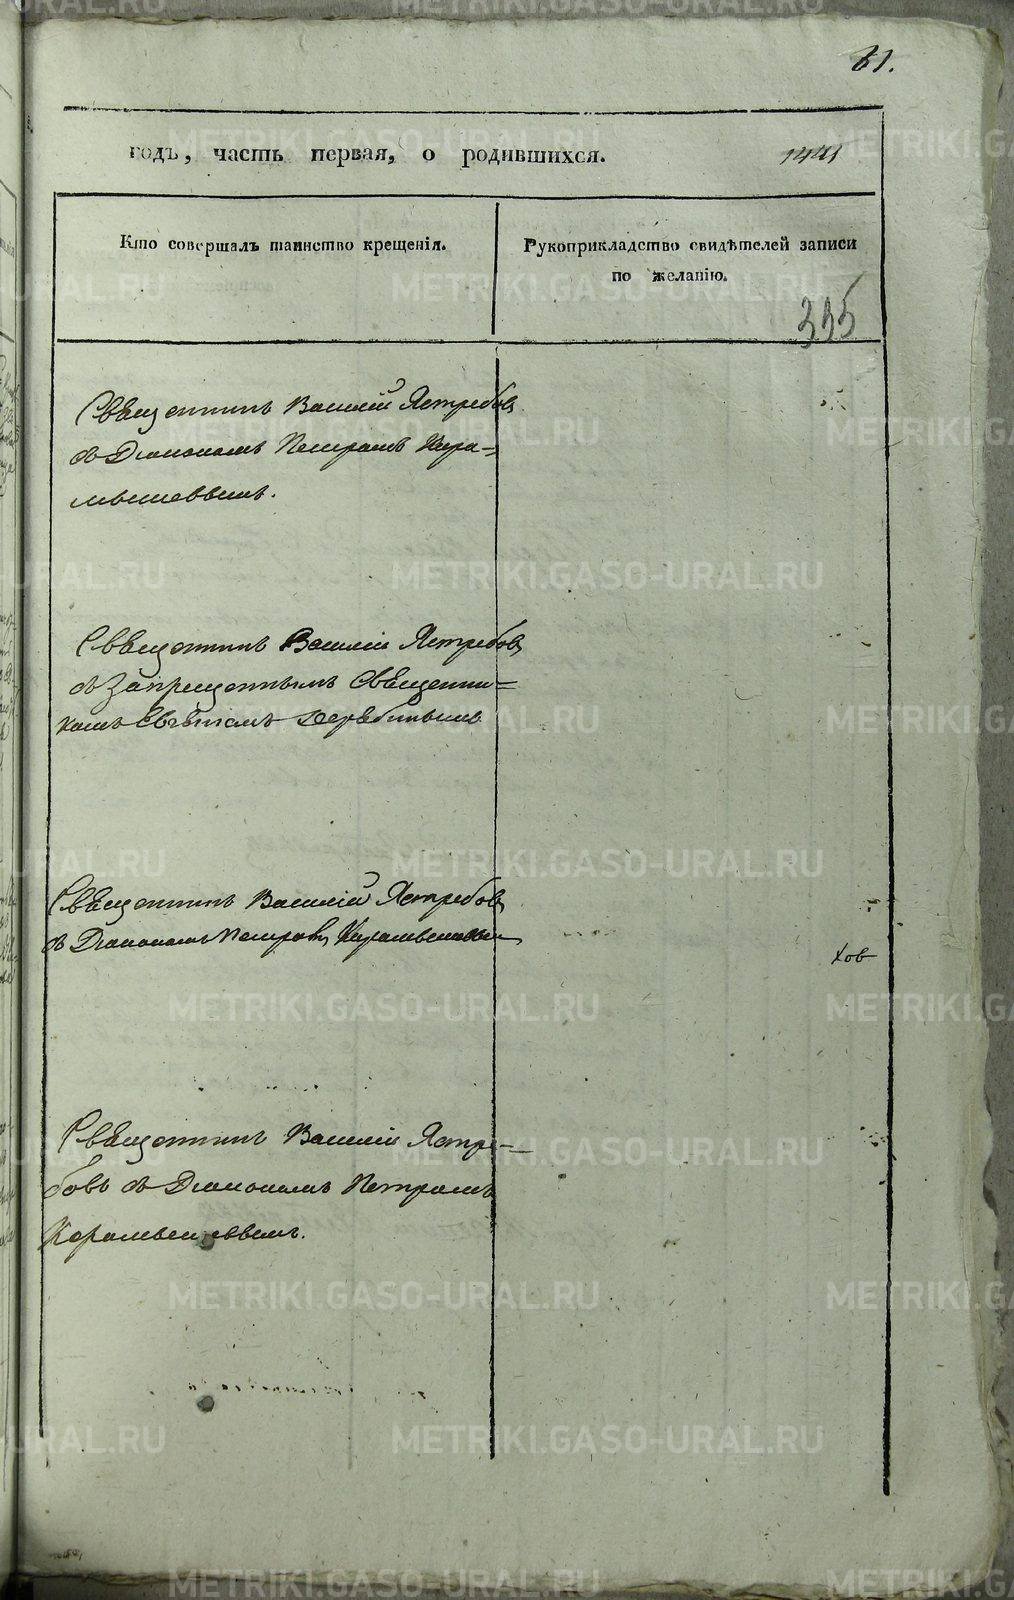 81.
годъ, часть первая, о родившихся.
1441
Кто совершалъ таинство крещенія.
Рукоприкладство свидѣтелей записи
по желанію.
335
Священникъ Василій Ястребовъ
съ Діакономъ Петромъ Кара=
мышевымъ.
Священникъ Василій Ястребовъ
съ Запрещеннымъ Священни=
комъ
Священникъ Василій Ястребовъ
съ Діакономъ Петромъ
хов
Священникъ Василій Ястре=
бовъ съ Діакономъ Петромъ
METRIKI.GASO-URAL.RU